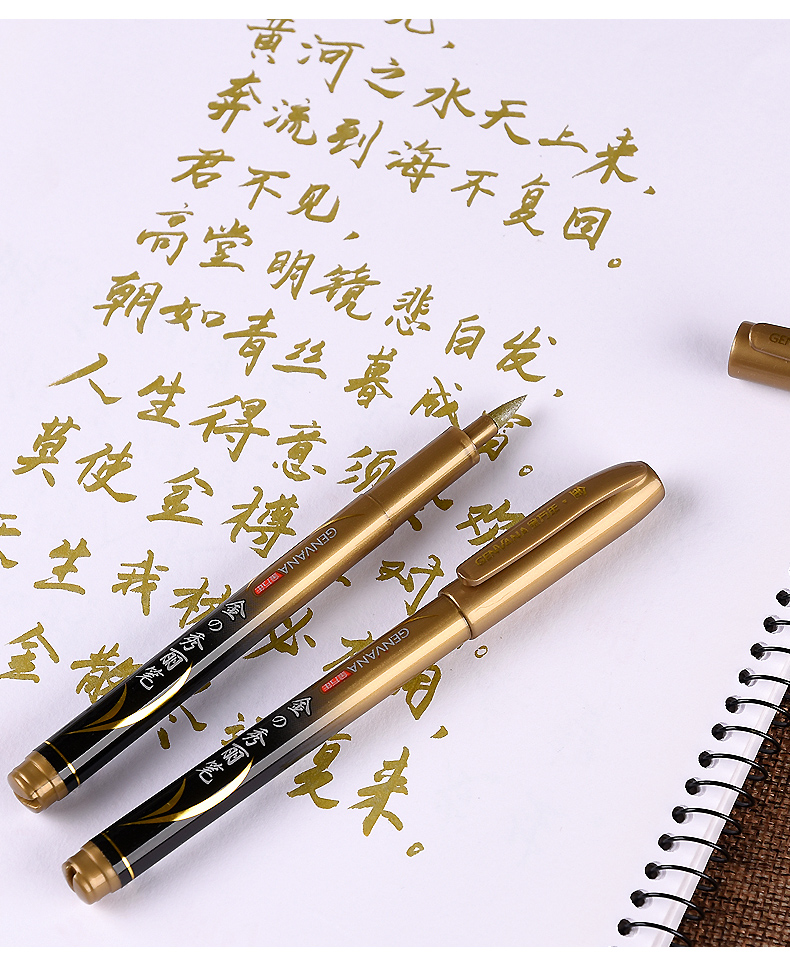 见，
黄河之水天上来，
奔流到海不复回。
君不见，
高堂明镜悲白发，
朝如青丝暮成雪。
人生得意须
莫使金樽 对
天生我材必 用，
金散 复来。
GENVANA
金の秀丽笔
GENVANA
GENVANA
金の秀丽笔
GEN